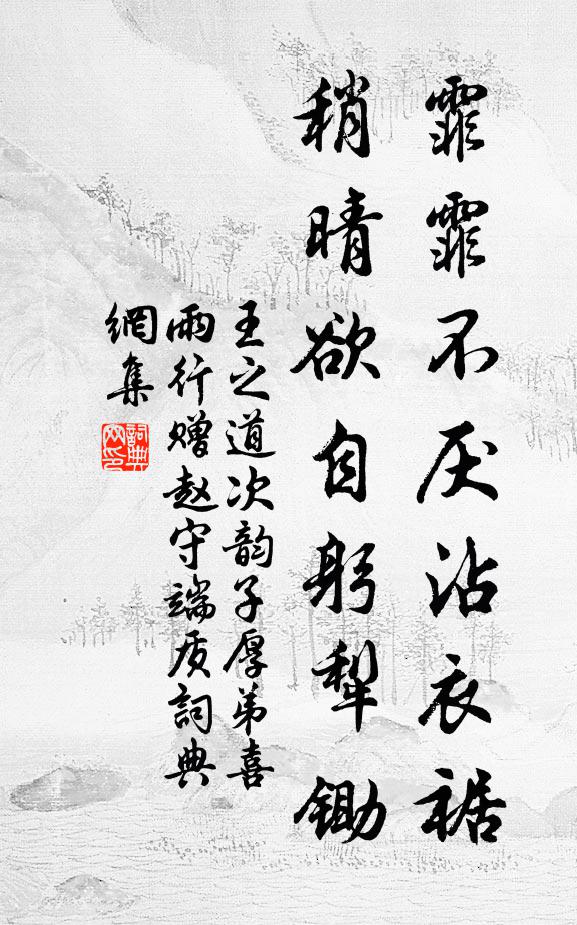 霏霏不厌沾衣裾
稍晴欲自躬犁锄
王之道次韵子厚弟喜
雨行赠赵守端质词典
網集
詞典
网印